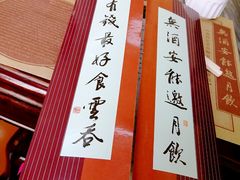 無酒安能邀月飲
無酒安能邀月飲
有錢最好食雲吞